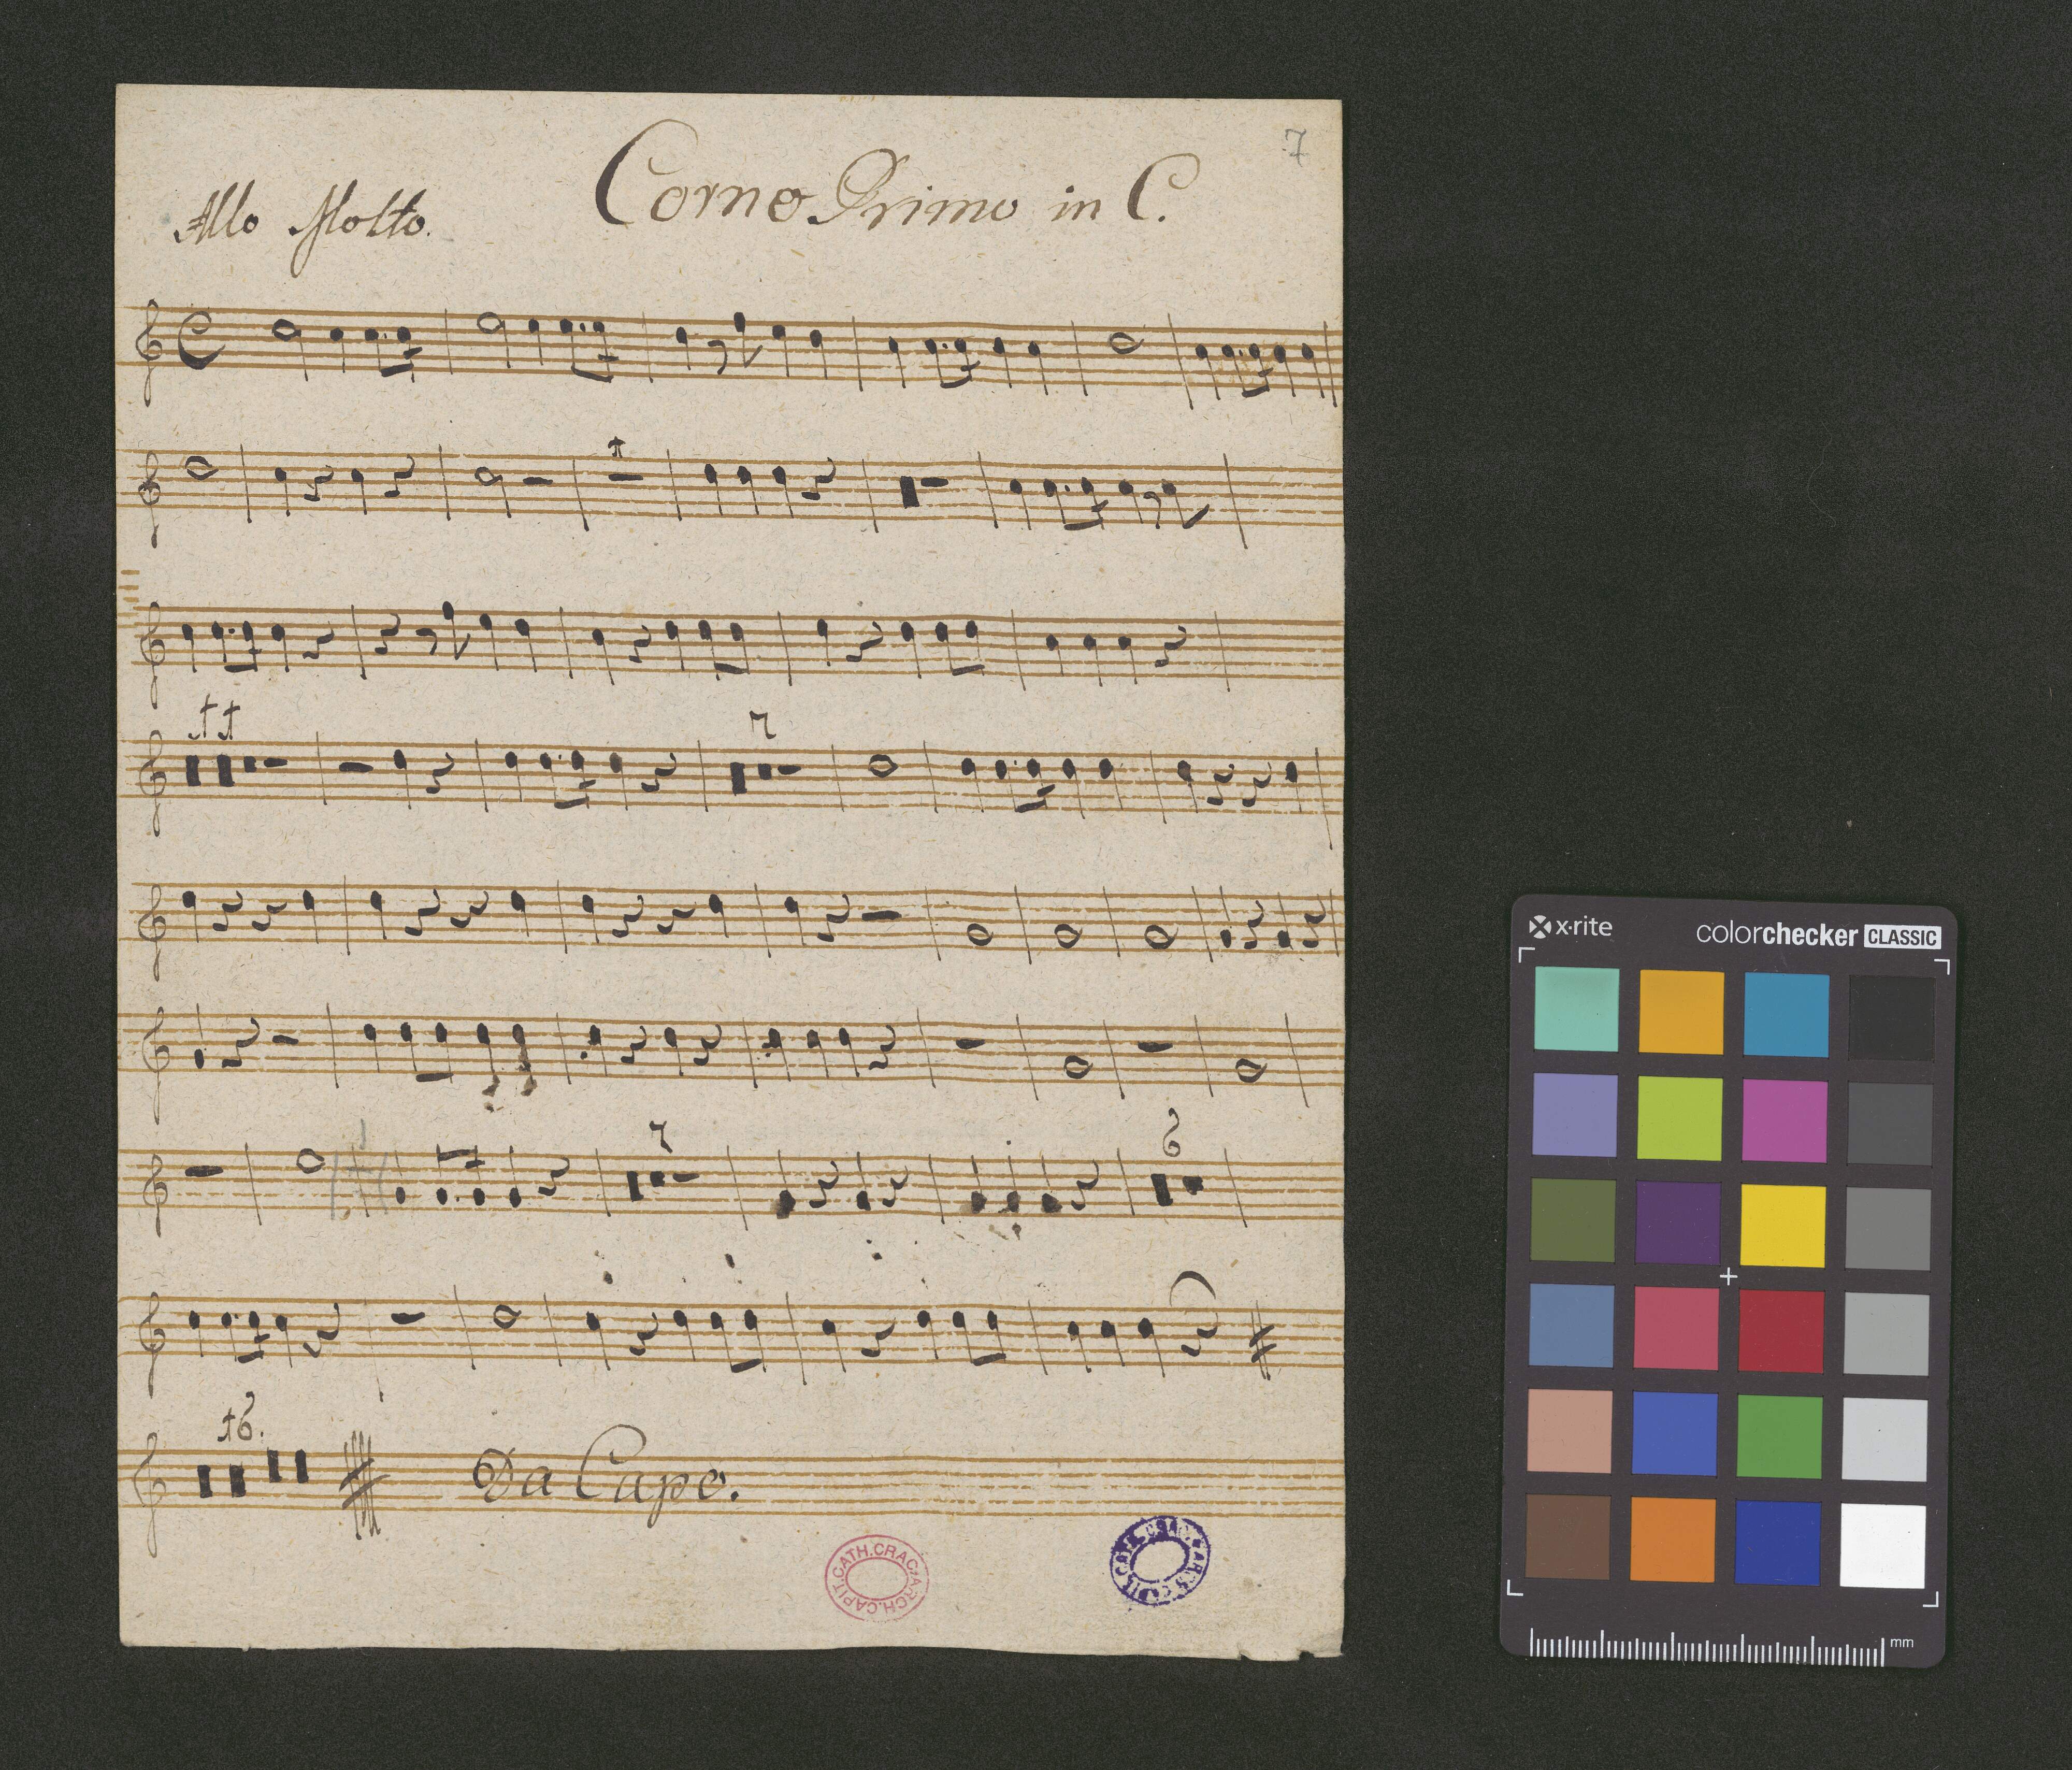 7
Corno Primo in C.
Allo Molto.
1
11
7
7
6
16.
Da Capo.
ARCH.CAPIT.CATH.CRAC.
x·rite
colorchecker CLASSIC
mm